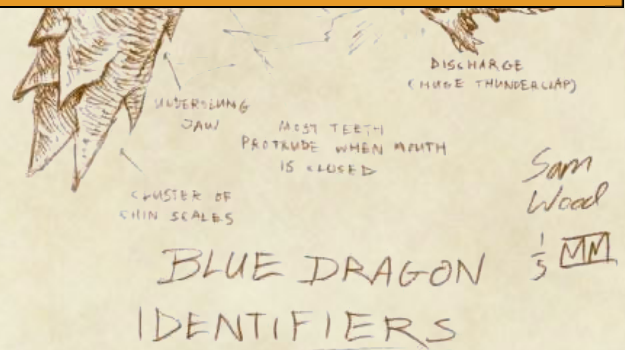 DISCHARGE
(HUGE THUNDERCLAP)
UNDERSLUNG
JAW
MOST TEETH
PROTRUDE WHEN MOUTH
IS CLOSED
CLUSTER OF
CHIN SCALES
Sam
Wood
1/5 MM
BLUE DRAGON
IDENTIFIERS